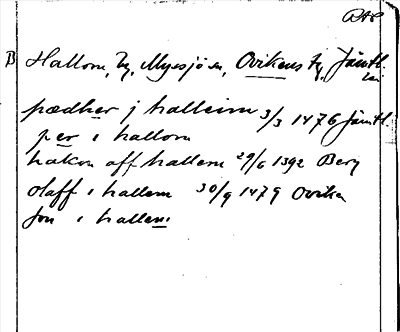 B Hallom, by, Myssjö sn, Ovikens tg, Jämtl.
län
pædher j halleim 3/3 1476 Jämtl.
per i hallom
hakon aff hallem 29/6 1392 Berg
olaff i hallem 30/9 1479 Oviken
Jon i hallem